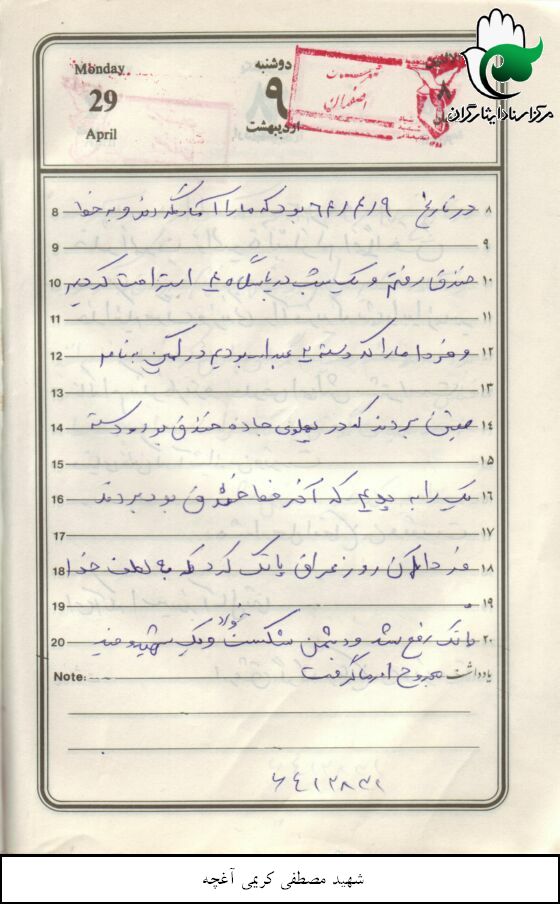 Monday
29
April
دوشنبه
۹
اردیبهشت
۸
مرکز اسناد ایثارگران
اصفهان
8 در تاریخ ۶۴/۴/۹ بود که ما را آماده کردند و به خط ۸
9 ۹
10 خندق رفتیم و یک شب در پاسگاه استراحت کردیم ۱۰
11 ۱۱
12 و فردا ما را که دسته ۲ بودیم در کمین به نام ۱۲
13 ۱۳
14 بردند که در پهلوی جاده خندق بود و دسته ۱۴
15 ۱۵
16 یک را به که آخر خط خندق بود بردند ۱۶
17 ۱۷
18 فردای آن روز عراق پاتک کرد که به لطف خدا ۱۸
19 ۱۹
20 پاتک رفع شد و دشمن شکست خورد و یک شهید و چند ۲۰
Note: مجروح از ما گرفت یادداشت
شهید مصطفی کریمی آغچه